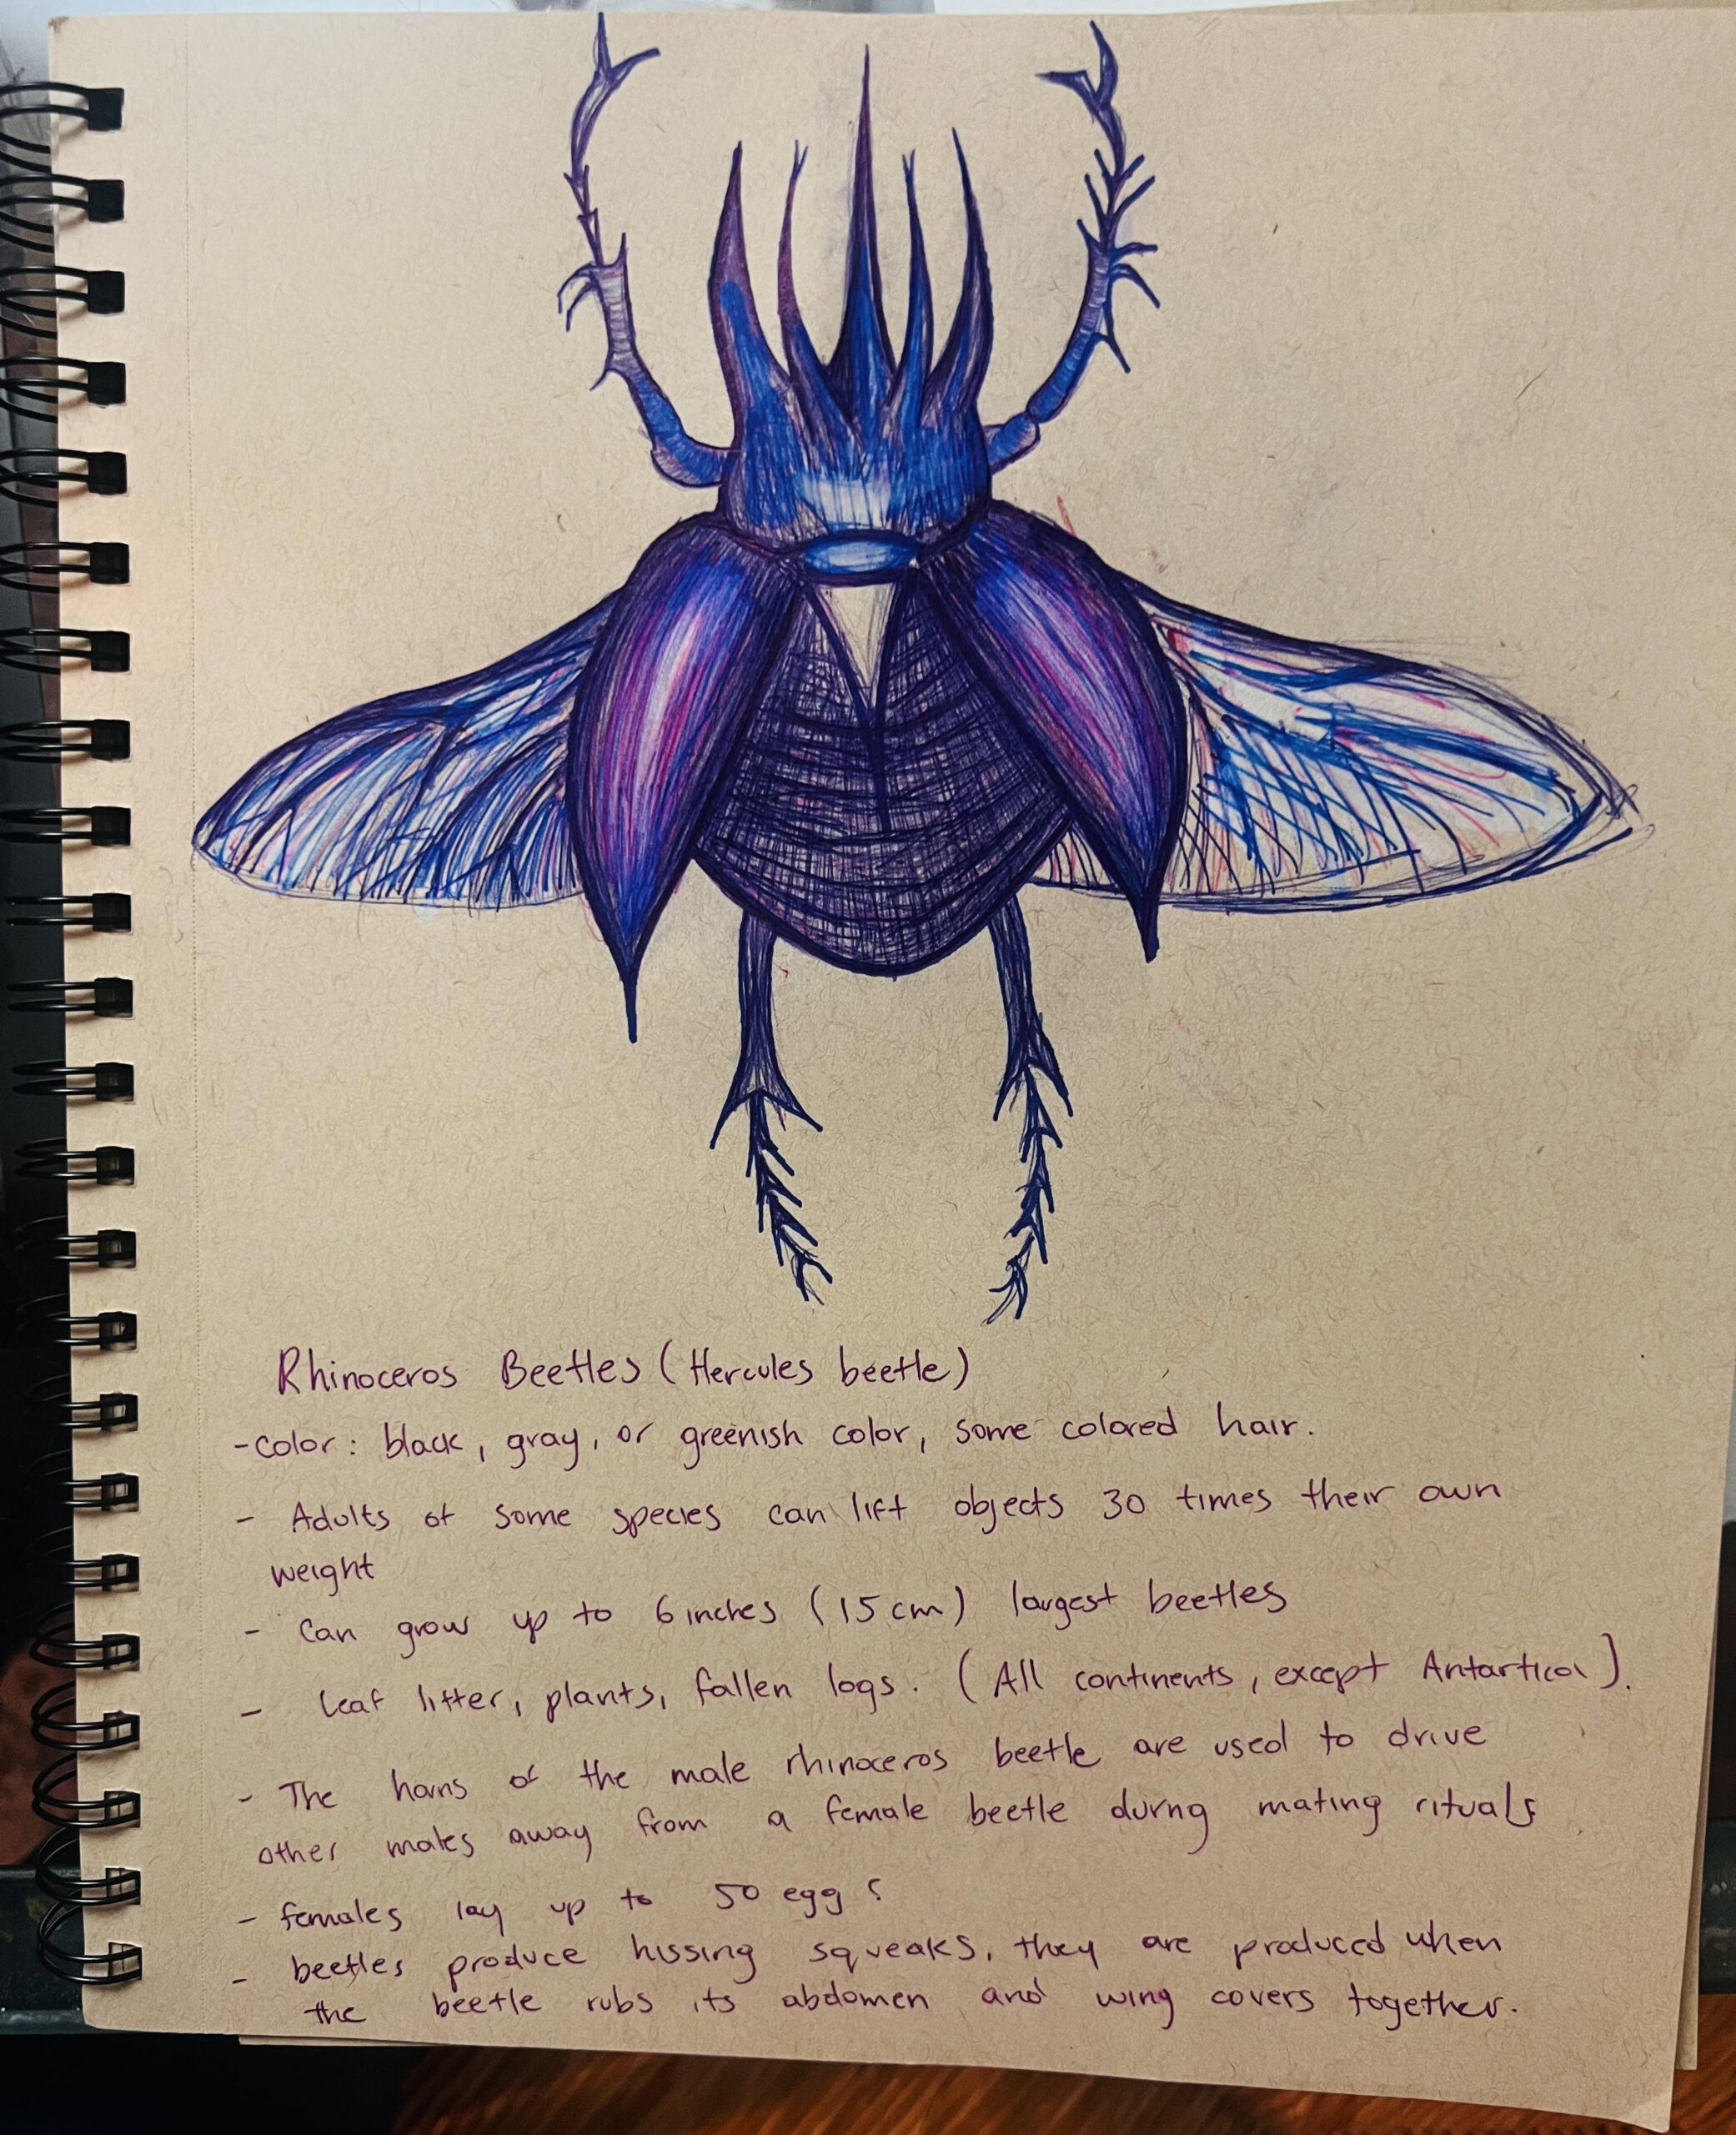 Rhinoceros Beetles (Hercules beetle)
-color: black, gray, or greenish color, some colored hair.
- Adults of some species can lift objects 30 times their own
weight
- Can grow up to 6 inches (15 cm) largest beetles
- Leaf litter, plants, fallen logs. (All continents, except Antartica).
- The horns of the male rhinoceros beetle are used to drive
other males away from a female beetle during mating rituals
- females lay up to 50 eggs
- beetles produce hissing squeaks, they are produced when
the beetle rubs its abdomen and wing covers together.